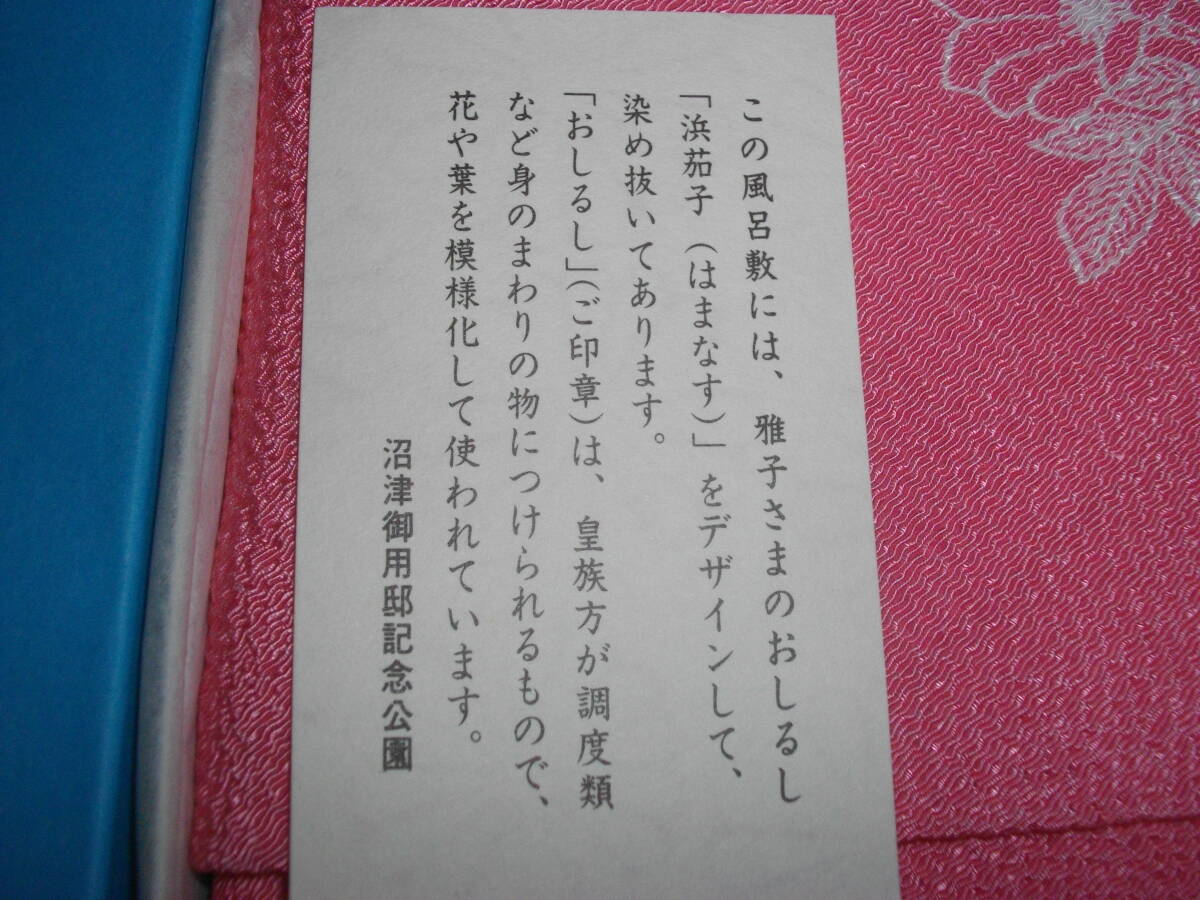 この風呂敷には、雅子さまのおしるし
「浜茄子（はまなす）」をデザインして、
染め抜いてあります。
「おしるし」（ご印章）は、皇族方が調度類
など身のまわりの物につけられるもので、
花や葉を模様化して使われています。
沼津御用邸記念公園